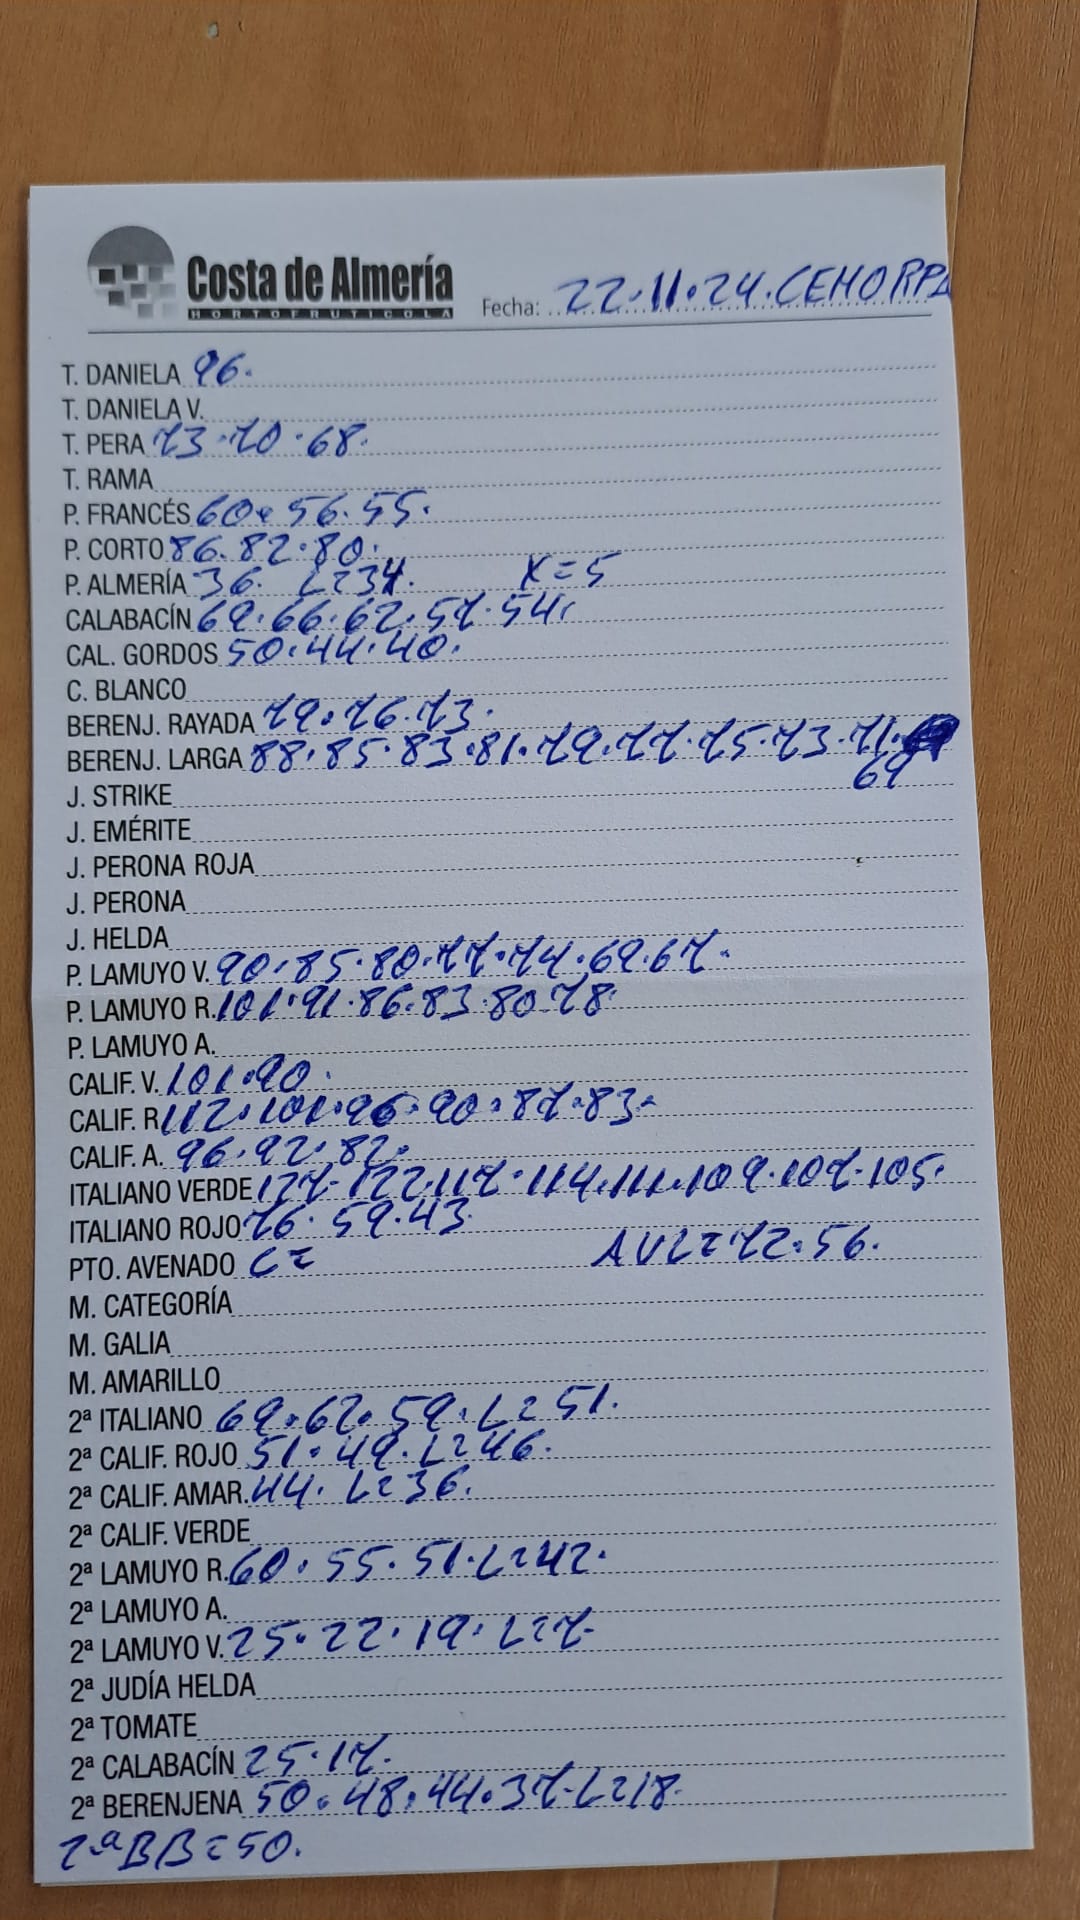 Costa de Almería
HORTOFRUTICOLA
Fecha: 22.11.24.CEHORPA
T. DANIELA 96.
T. DANIELA V.
T. PERA 73.70.68.
T. RAMA
P. FRANCÉS 60.56.55.
P. CORTO 86.82.80.
P. ALMERÍA 36. L=34. X=5
CALABACÍN 69.66.62.57.54.
CAL. GORDOS 50.44.40.
C. BLANCO
BERENJ. RAYADA 79.76.73.
BERENJ. LARGA 88.85.83.81.79.77.75.73.71.
69
J. STRIKE
J. EMÉRITE
J. PERONA ROJA
J. PERONA
J. HELDA
P. LAMUYO V. 90.85.80.77.74.69.67.
P. LAMUYO R. 101.91.86.83.80.78.
P. LAMUYO A.
CALIF. V. 101.90.
CALIF. R 112.101.96.90.87.83.
CALIF. A. 96.92.82.
ITALIANO VERDE 127.122.117.114.111.109.107.105.
ITALIANO ROJO 76.59.43.
PTO. AVENADO C= AVL=72.56.
M. CATEGORÍA
M. GALIA
M. AMARILLO
2ª ITALIANO 69.62.59.L=51.
2ª CALIF. ROJO 51.49.L=46.
2ª CALIF. AMAR. 44. L=36.
2ª CALIF. VERDE
2ª LAMUYO R. 60.55.51.L=42.
2ª LAMUYO A.
2ª LAMUYO V. 25.22.19.L=7.
2ª JUDÍA HELDA
2ª TOMATE
2ª CALABACÍN 25.17.
2ª BERENJENA 50.48.44.37.L=18.
2ªBB=50.